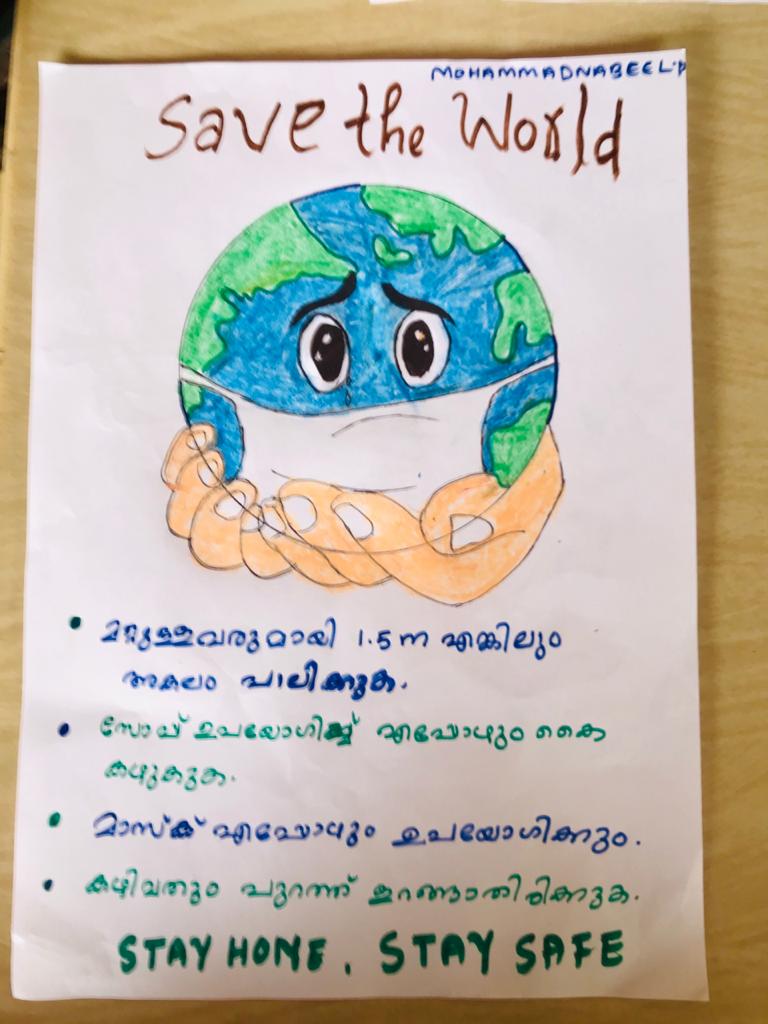 MOHAMMADNABEEL.P
Save the World
മറ്റുള്ളവരുമായി 1.5 m എങ്കിലും
അകലം പാലിക്കുക.
സോപ്പ് ഉപയോഗിച്ച് എപ്പോഴും കൈ
കഴുകുക.
മാസ്ക് എപ്പോഴും ഉപയോഗിക്കും.
കഴിവതും പുറത്ത് ഇറങ്ങാതിരിക്കുക.
STAY HOME, STAY SAFE